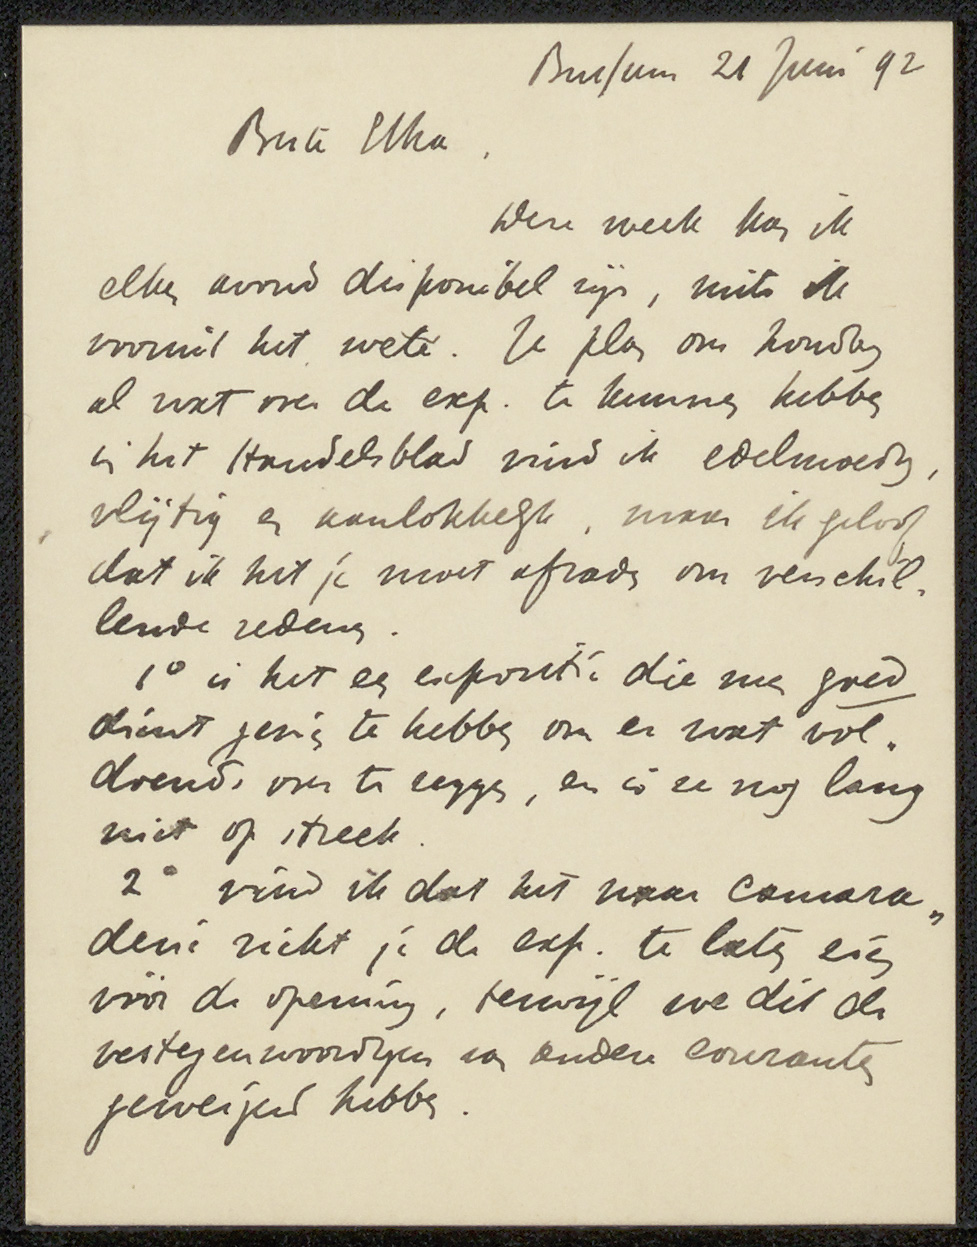 Bussum 21 Juni 92
Beste Ekka,
Deze week kan ik
elken avond disponibel zijn, mits ik
vooruit het wete. Je plan om Zondag
al wat over de exp. te kunnen hebben
in het Handelsblad vind ik edelmoedig,
vlijtig en aanlokkelijk, maar ik geloof
dat ik het je moet afraden om verschil-
lende redenen.
1° is het een expositie die men goed
dient gezien te hebben om er wat vol-
doends over te zeggen, en is ze nog lang
niet op streek.
2° vind ik dat het naar camara-
derie riekt je de exp. te laten zien
vóór de opening, terwijl we dit de
vertegenwoordigers van andere couranten
geweigerd hebben.